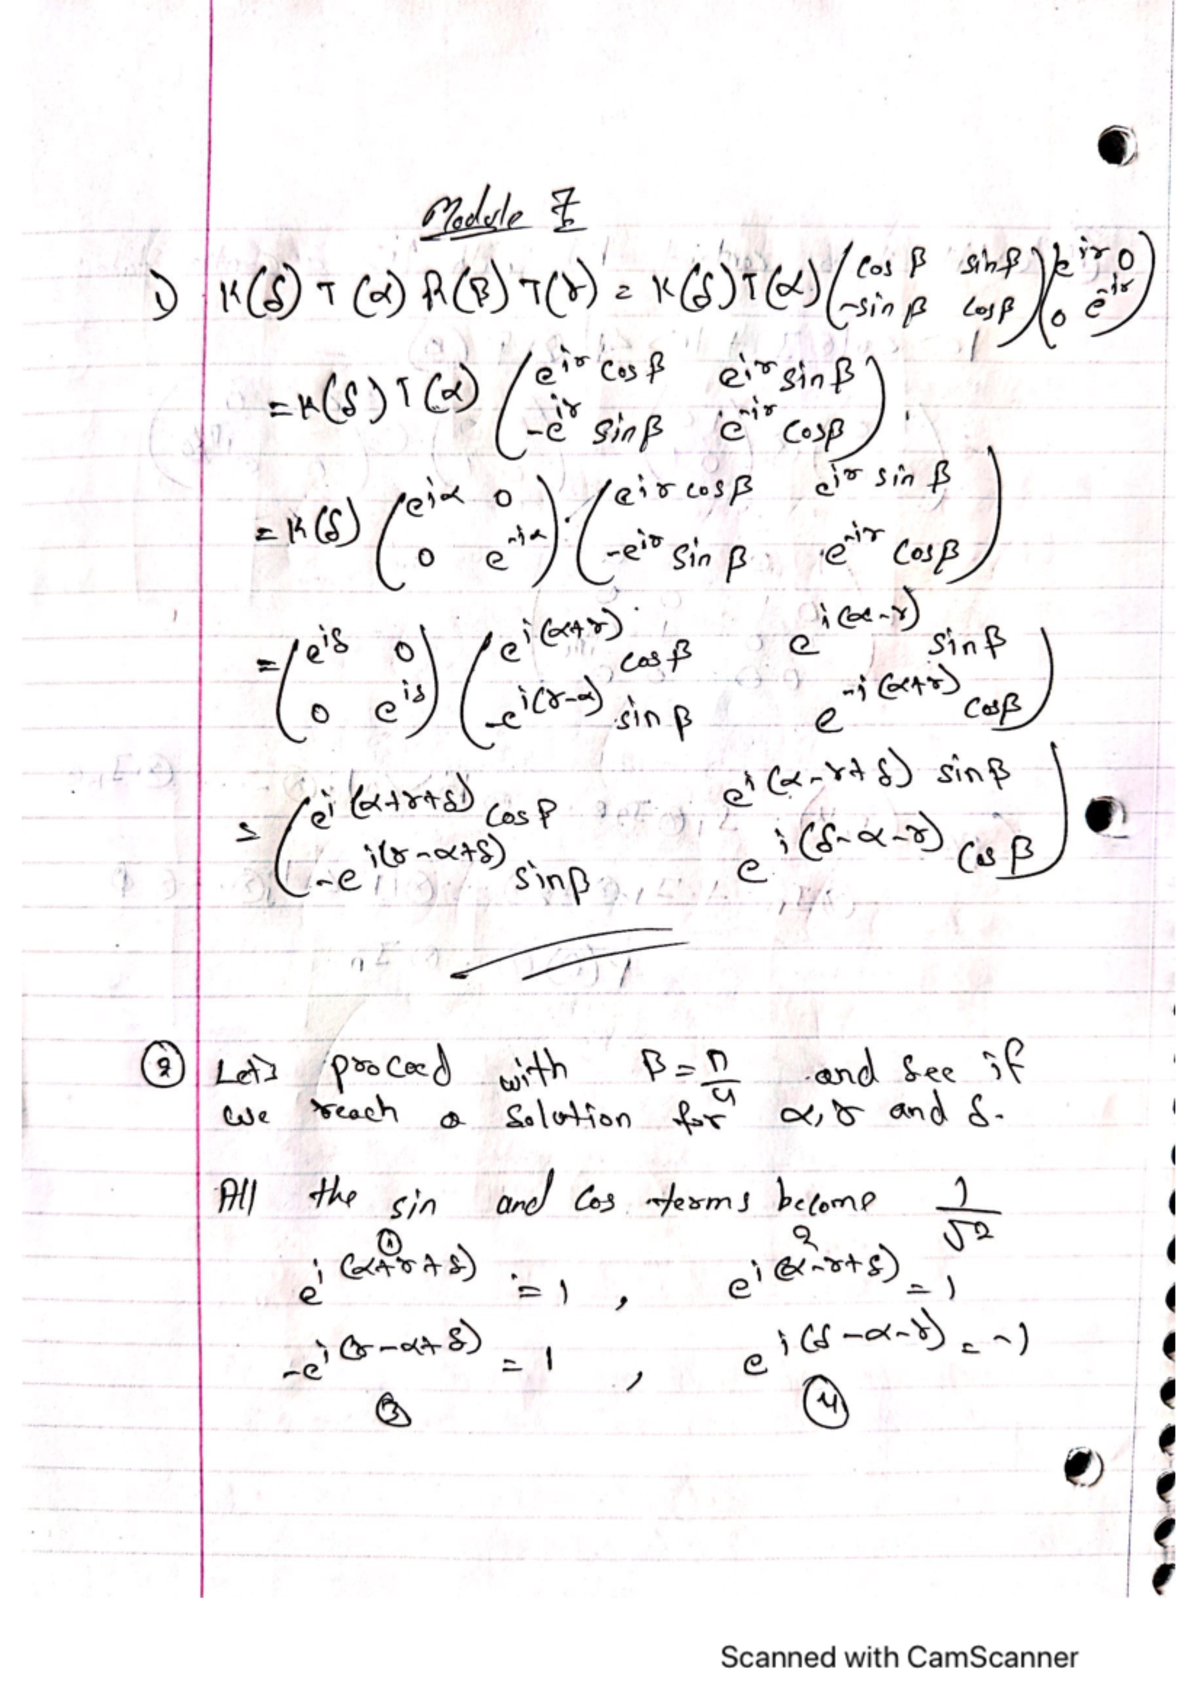 Module 7
1) K(δ) T(α) R(β) T(γ) = K(δ) T(α) (cos β sin β -sin β cos β) (e^{iγ} 0 0 e^{-iγ})
= K(δ) T(α) (e^{iγ} cos β e^{iγ} sin β -e^{iγ} sin β e^{-iγ} cos β)
= K(δ) (e^{iα} 0 0 e^{-iα}) · (e^{iγ} cos β e^{iγ} sin β -e^{iγ} sin β e^{-iγ} cos β)
= (e^{iδ} 0 0 e^{iδ}) (e^{i(α+γ)} cos β e^{i(α-γ)} sin β -e^{i(γ-α)} sin β e^{-i(α+γ)} cos β)
= (e^{i(α+γ+δ)} cos β e^{i(α-γ+δ)} sin β -e^{i(γ-α+δ)} sin β e^{i(δ-α-γ)} cos β)
② Let's proceed with β = π/4 and see if
we reach a solution for α, γ and δ.
All the sin and cos terms become 1/√2
① e^{i(α+γ+δ)} = 1 , 2 e^{i(α-γ+δ)} = 1
-e^{i(γ-α+δ)} = 1 , e^{i(δ-α-γ)} = -1
③ ④
Scanned with CamScanner